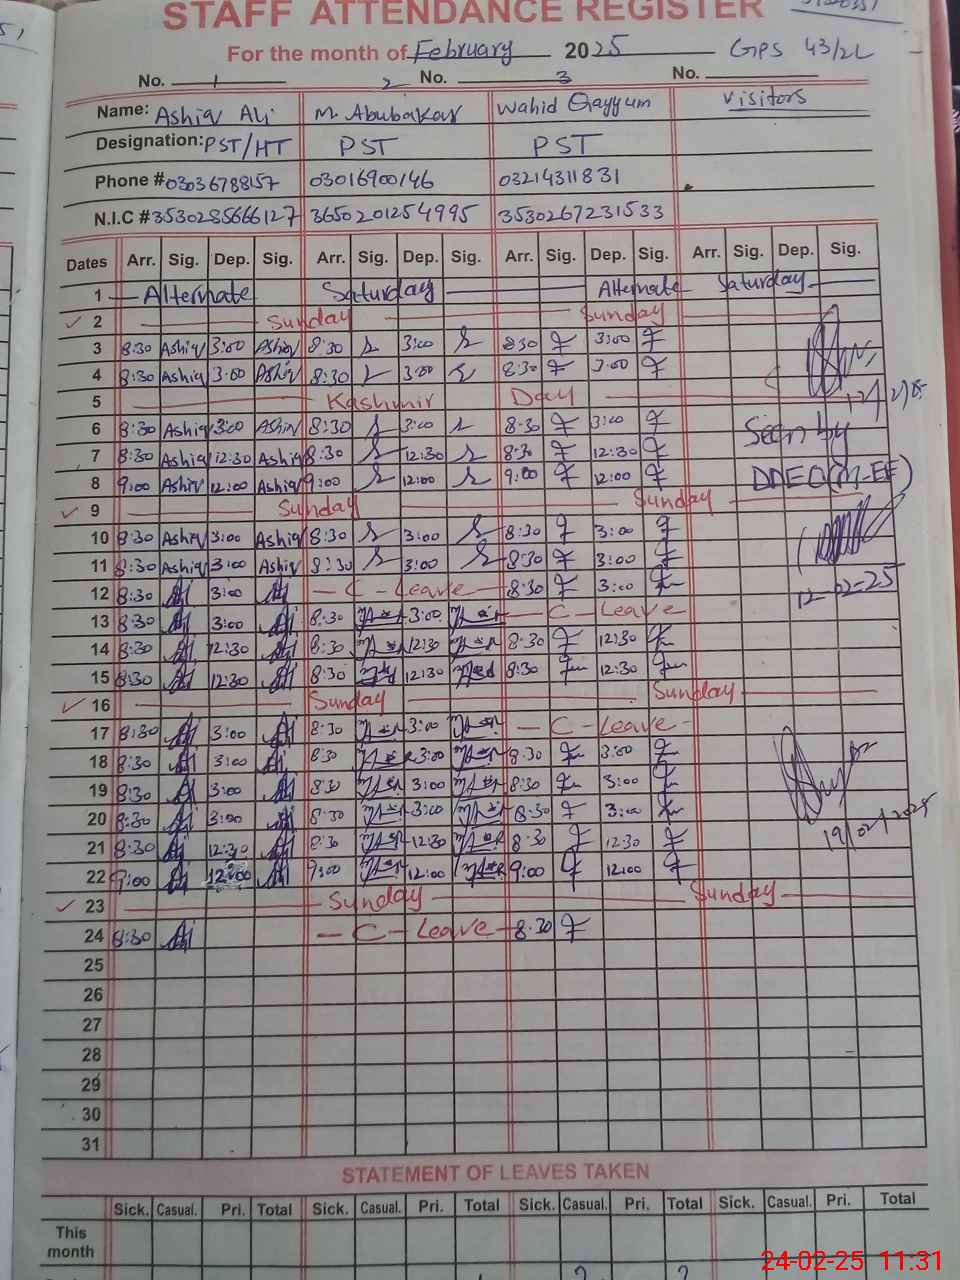 STAFF ATTENDANCE REGISTER
For the month of February 2025 GPS 43/2L
No. 1 2 No. 3 No.
Name: Ashiq Ali M. Abubakar Wahid Qayyum Visitors
Designation: PST/HT PST PST
Phone # 03036788157 03016900146 03214311831
N.I.C # 3530285666127 3650201254995 3530267231533
Dates Arr. Sig. Dep. Sig. Arr. Sig. Dep. Sig. Arr. Sig. Dep. Sig. Arr. Sig. Dep. Sig.
1 Alternate Saturday Alternate Saturday
2 Sunday Sunday
3 8:30 Ashiq 3:00 Ashiq 8:30 3:00 8:30 3:00
4 8:30 Ashiq 3:00 Ashiq 8:30 3:00 8:30 3:00
5 Kashmir Day
6 8:30 Ashiq 3:00 Ashiq 8:30 3:00 8:30 3:00
7 8:30 Ashiq 12:30 Ashiq 8:30 12:30 8:30 12:30 Seen by
8 9:00 Ashiq 12:00 Ashiq 9:00 12:00 9:00 12:00 DDEO(M-EE)
9 Sunday Sunday
10 8:30 Ashiq 3:00 Ashiq 8:30 3:00 8:30 3:00
11 8:30 Ashiq 3:00 Ashiq 8:30 3:00 8:30 3:00
12 8:30 3:00 C-Leave 8:30 3:00 12-02-25
13 8:30 3:00 8:30 3:00 C-Leave
14 8:30 12:30 8:30 12:30 8:30 12:30
15 8:30 12:30 8:30 12:30 8:30 12:30
16 Sunday Sunday
17 8:30 3:00 8:30 3:00 C-Leave
18 8:30 3:00 8:30 3:00 8:30 3:00
19 8:30 3:00 8:30 3:00 8:30 3:00
20 8:30 3:00 8:30 3:00 8:30 3:00 19/02/2025
21 8:30 12:30 8:30 12:30 8:30 12:30
22 9:00 12:00 9:00 12:00 9:00 12:00
23 Sunday Sunday
24 8:30 C-Leave 8:30
25
26
27
28
29
30
31
STATEMENT OF LEAVES TAKEN
Sick. Casual. Pri. Total Sick. Casual. Pri. Total Sick. Casual. Pri. Total Sick. Casual. Pri. Total
This month
24-02-25 11:31